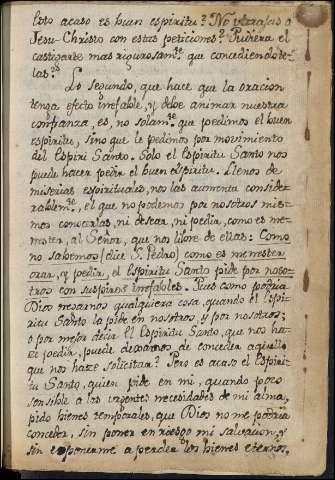 Esto acaso es buen espiritu? No ultrajas a
Jesu-Christo con estas peticiones? Pudiera el
castigarte mas rigurosam.te que concediendote-
las?
Lo segundo, que hace que la oracion
tenga efecto infalible, y debe animar nuestra
confianza, es, no solam.te que pedimos el buen
espiritu, sino que le pedimos por movimiento
del Espiri Santo. Solo el Espiritu Santo nos
puede hacer pedir el buen espiritu. Llenos de
miserias espirituales, nos las aumenta consider
rablem.te, el que no podemos por nosotros mis-
mos conocerlas, ni desear, ni pedir, como es me-
nester, al Señor, que nos libre de ellas: Como
no sabemos (dice S. Pedro) como es menester
orar, y pedir, el Espiritu Santo pide por noso-
tros con suspiros inefables. Pues como podria
Dios negarnos qualquiera cosa, quando el Espi-
ritu Santo la pide en nosotros, y por nosotros;
o por mejor decir el Espiritu Santo, que nos ha-
ce pedir, puede de conceder aquello
que nos hace solicitar? Pero es acaso el Espiri-
tu Santo, quien pide en mi, quando poco
sensible a las urgentes necesidades de mi alma,
pido bienes temporales, que Dios no me podria
conceder, sin poner en riesgo mi salvacion, y
sin exponerme a perder los bienes eternos.